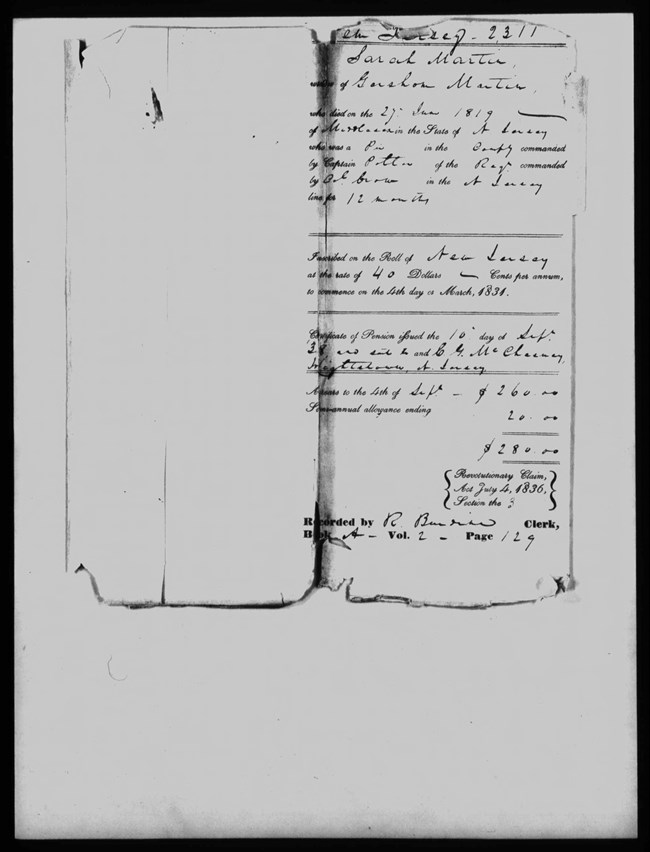 Jersey - 2311
Sarah Martin,
widow of Gershom Martin,
who died on the 27 June 1819
of Middlesex in the State of N Jersey
who was a Pri in the Compy commanded
by Captain Potter of the Regt commanded
by Col Crow in the N Jersey
line for 12 months
Inscribed on the Roll of New Jersey
at the rate of 40 Dollars — Cents per annum,
to commence on the 4th day of March, 1831.
Certificate of Pension issued the 10 day of Sept
38 and sent to and C. G. McChesney,
Hightstown, N. Jersey
Arrears to the 4th of Sept — $ 260.00
Semi-annual allowance ending 20.00
$ 280.00
Revolutionary Claim,
Act July 4, 1836,
Section the 3
Recorded by R Clerk,
Book A - Vol. 2 - Page 129